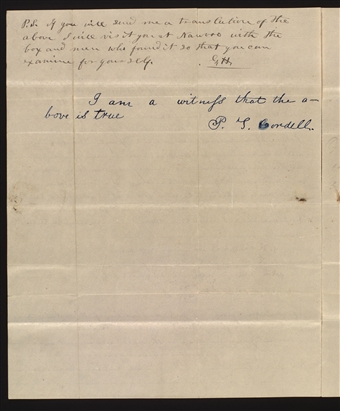 P.S. if you will send me a translation of the
above I will visit you at Nauvoo with the
box and men who found it so that you can
examine for your self. GH.
I am a witness that the a-
bove is true
P. T. Cordell.